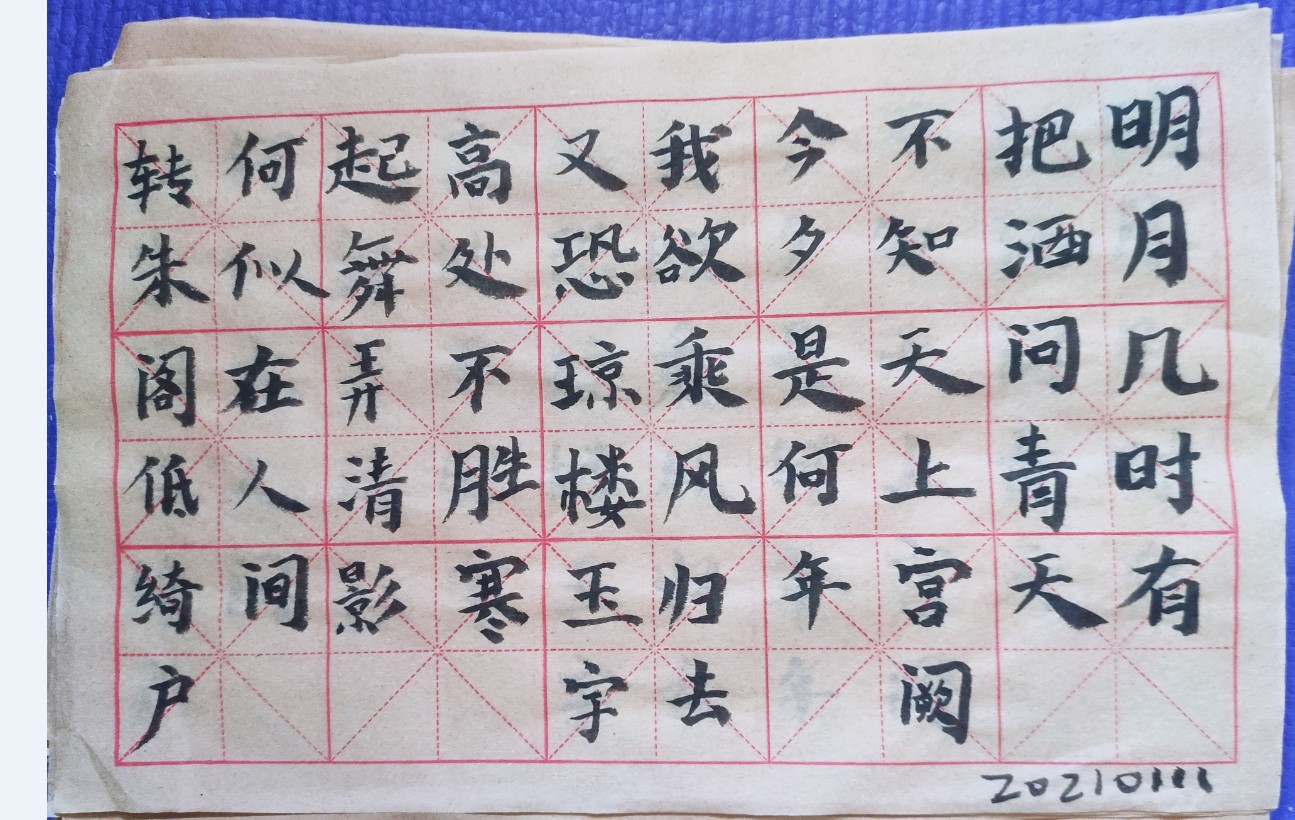 明月几时有
把酒问青天
不知天上宫阙
今夕是何年
我欲乘风归去
又恐琼楼玉宇
高处不胜寒
起舞弄清影
何似在人间
转朱阁低绮户
20210111